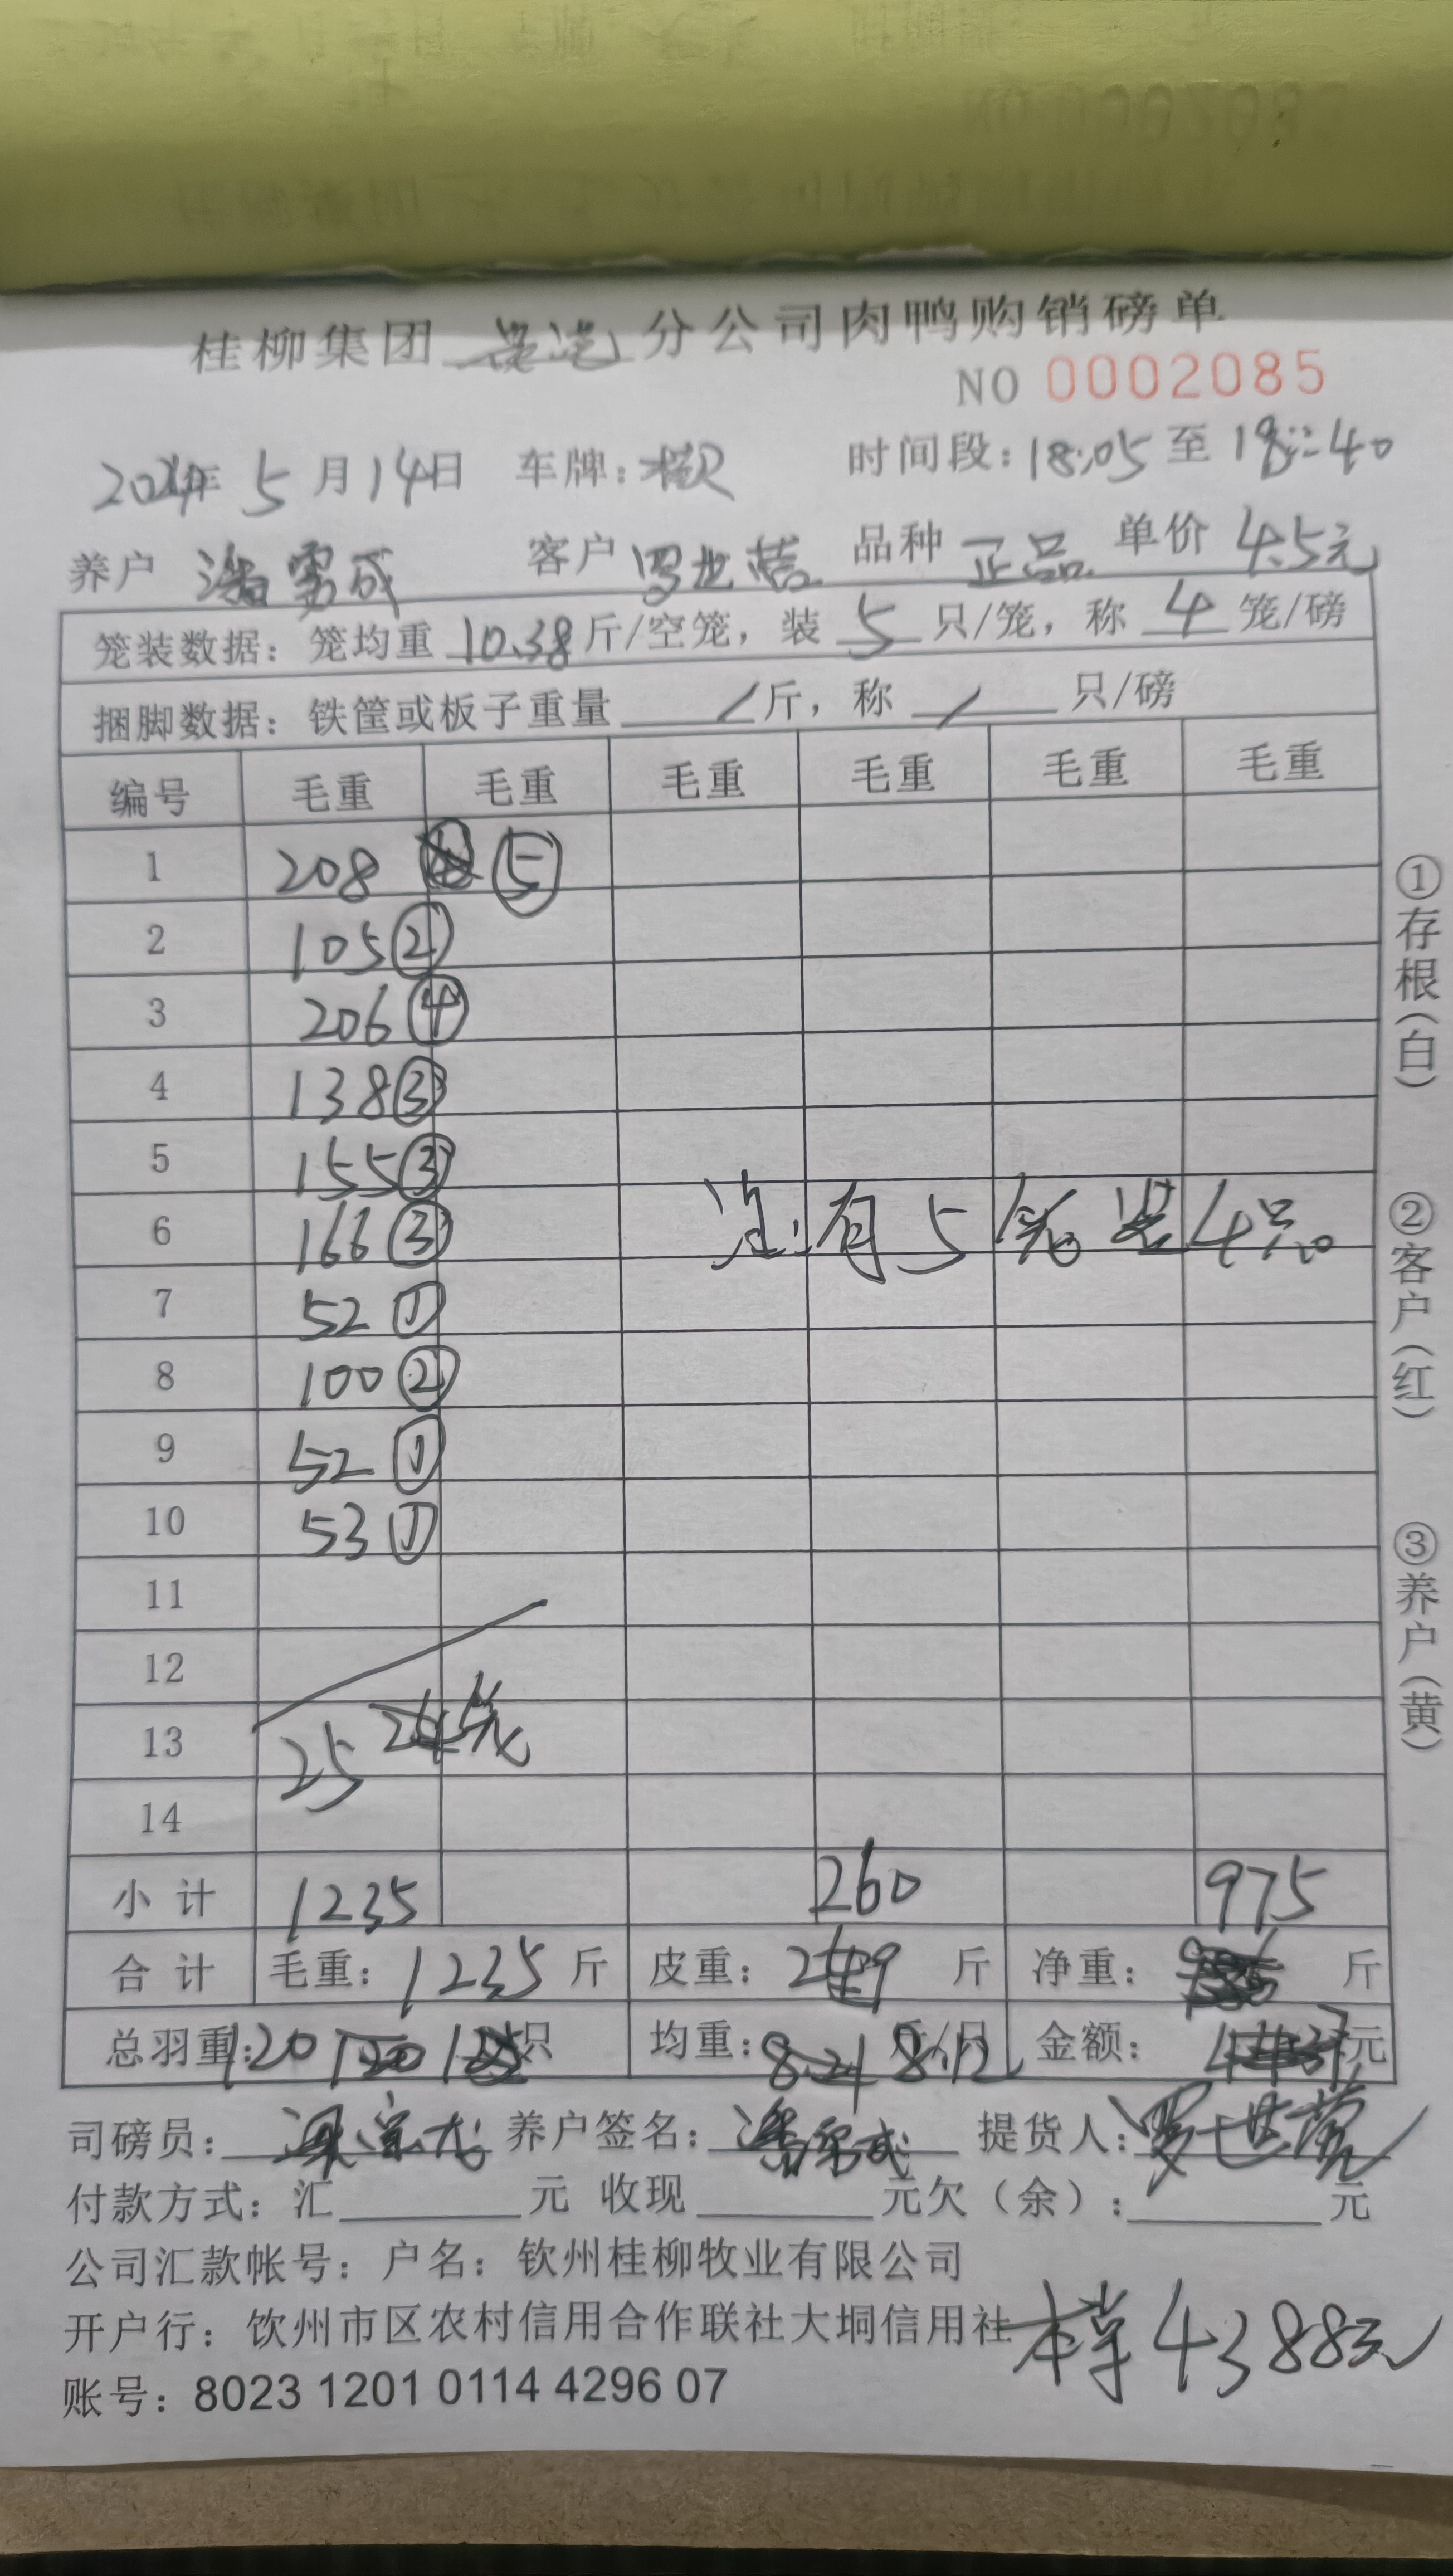 桂柳集团 分公司肉鸭购销磅单
NO 0002085
2024年 5 月 14 日 车牌: 时间段: 18:05 至 19:40
养户 客户 罗世营 品种 正品 单价 4.5元
笼装数据: 笼均重 10.38 斤/空笼, 装 5 只/笼, 称 4 笼/磅
捆脚数据: 铁筐或板子重量 / 斤, 称 / 只/磅
编号 毛重 毛重 毛重 毛重 毛重 毛重
1 208 ⑤
2 105 ②
3 206 ④
4 138 ③
5 155 ③
6 166 ③ 注:有5笼装4只。
7 52 ①
8 100 ②
9 52 ①
10 53 ①
11
12
13 25 笼
14
小 计 1235 260 975
合 计 毛重: 1235 斤 皮重: 斤 净重: 斤
总羽重: 120 只 均重: 8.12 斤/只 金额: 元
司磅员: 养户签名: 提货人: 罗世营
付款方式: 汇 元 收现 元欠(余): 元
公司汇款帐号: 户名: 钦州桂柳牧业有限公司
开户行: 钦州市区农村信用合作联社大垌信用社
本单4388元
账号: 8023 1201 0114 4296 07
①存根(白)
②客户(红)
③养户(黄)